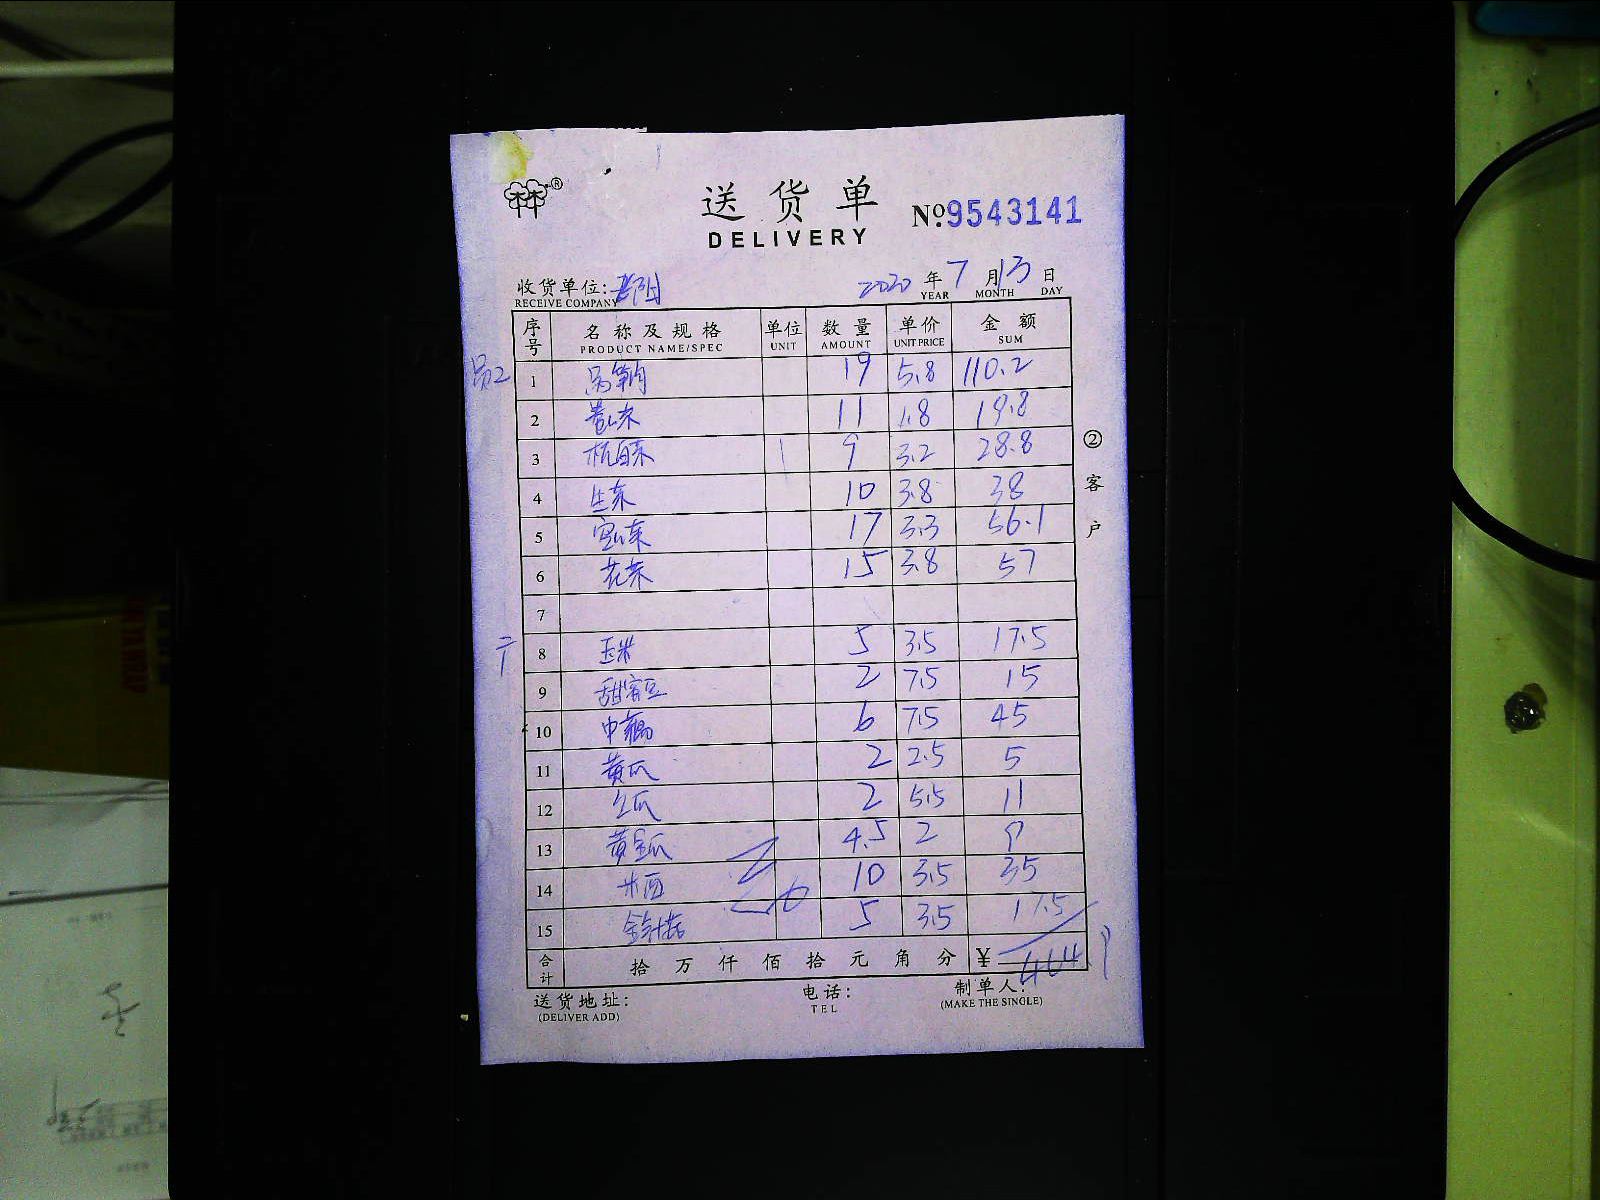 送货单
DELIVERY
No.9543141
收货单位:
RECEIVE COMPANY
2020 年 7 月 13 日
YEAR MONTH DAY
序号 名称及规格 单位 数量 单价 金额
PRODUCT NAME/SPEC UNIT AMOUNT UNIT PRICE SUM
1 19 5.8 110.2
2 11 1.8 19.8
3 杭白菜 9 3.2 28.8
4 生菜 10 3.8 38
5 17 3.3 56.1
6 花菜 15 3.8 57
7
8 玉米 5 3.5 17.5
9 甜蜜豆 2 7.5 15
10 中藕 6 7.5 45
11 黄瓜 2 2.5 5
12 2 5.5 11
13 黄金瓜 4.5 2 9
14 10 3.5 35
15 金针菇 5 3.5 17.5
合计 拾 万 仟 佰 拾 元 角 分 ¥ 464.9
② 客户
送货地址:
(DELIVER ADD)
电话:
TEL
制单人:
(MAKE THE SINGLE)